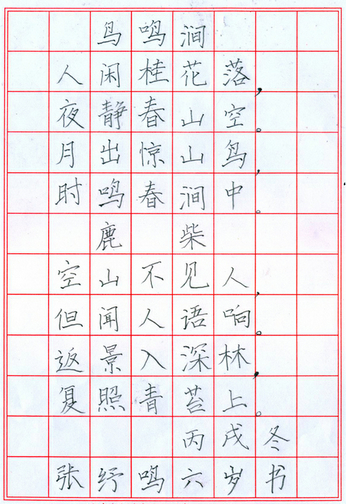 鸟鸣涧
人闲桂花落，
夜静春山空。
月出惊山鸟，
时鸣春涧中。
鹿柴
空山不见人，
但闻人语响。
返景入深林，
复照青苔上。
丙戌冬
张纾鸣六岁书